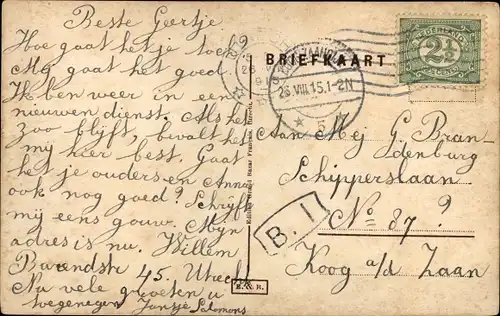 Beste Geertje
Hoe gaat het je toch?
Mij gaat het goed
Ik ben weer in een
nieuwen dienst. Als het
zoo blijft, bevalt het
mij hier best. Gaat
het je ouders en Anna
ook nog goed? Schrijf
mij eens gouw. Mijn
adres is nu. Willem
Barendstr 45. Utrecht
Na vele groeten u
toegenegen Jansje Salomons
BRIEFKAART
NEDERLAND
2½
CENT
26 VIII 15.1-2N
5
Aan Mej G. Bran-
denburg
Schipperslaan
No 87?
Koog a/d Zaan
B. 1
B. & R.